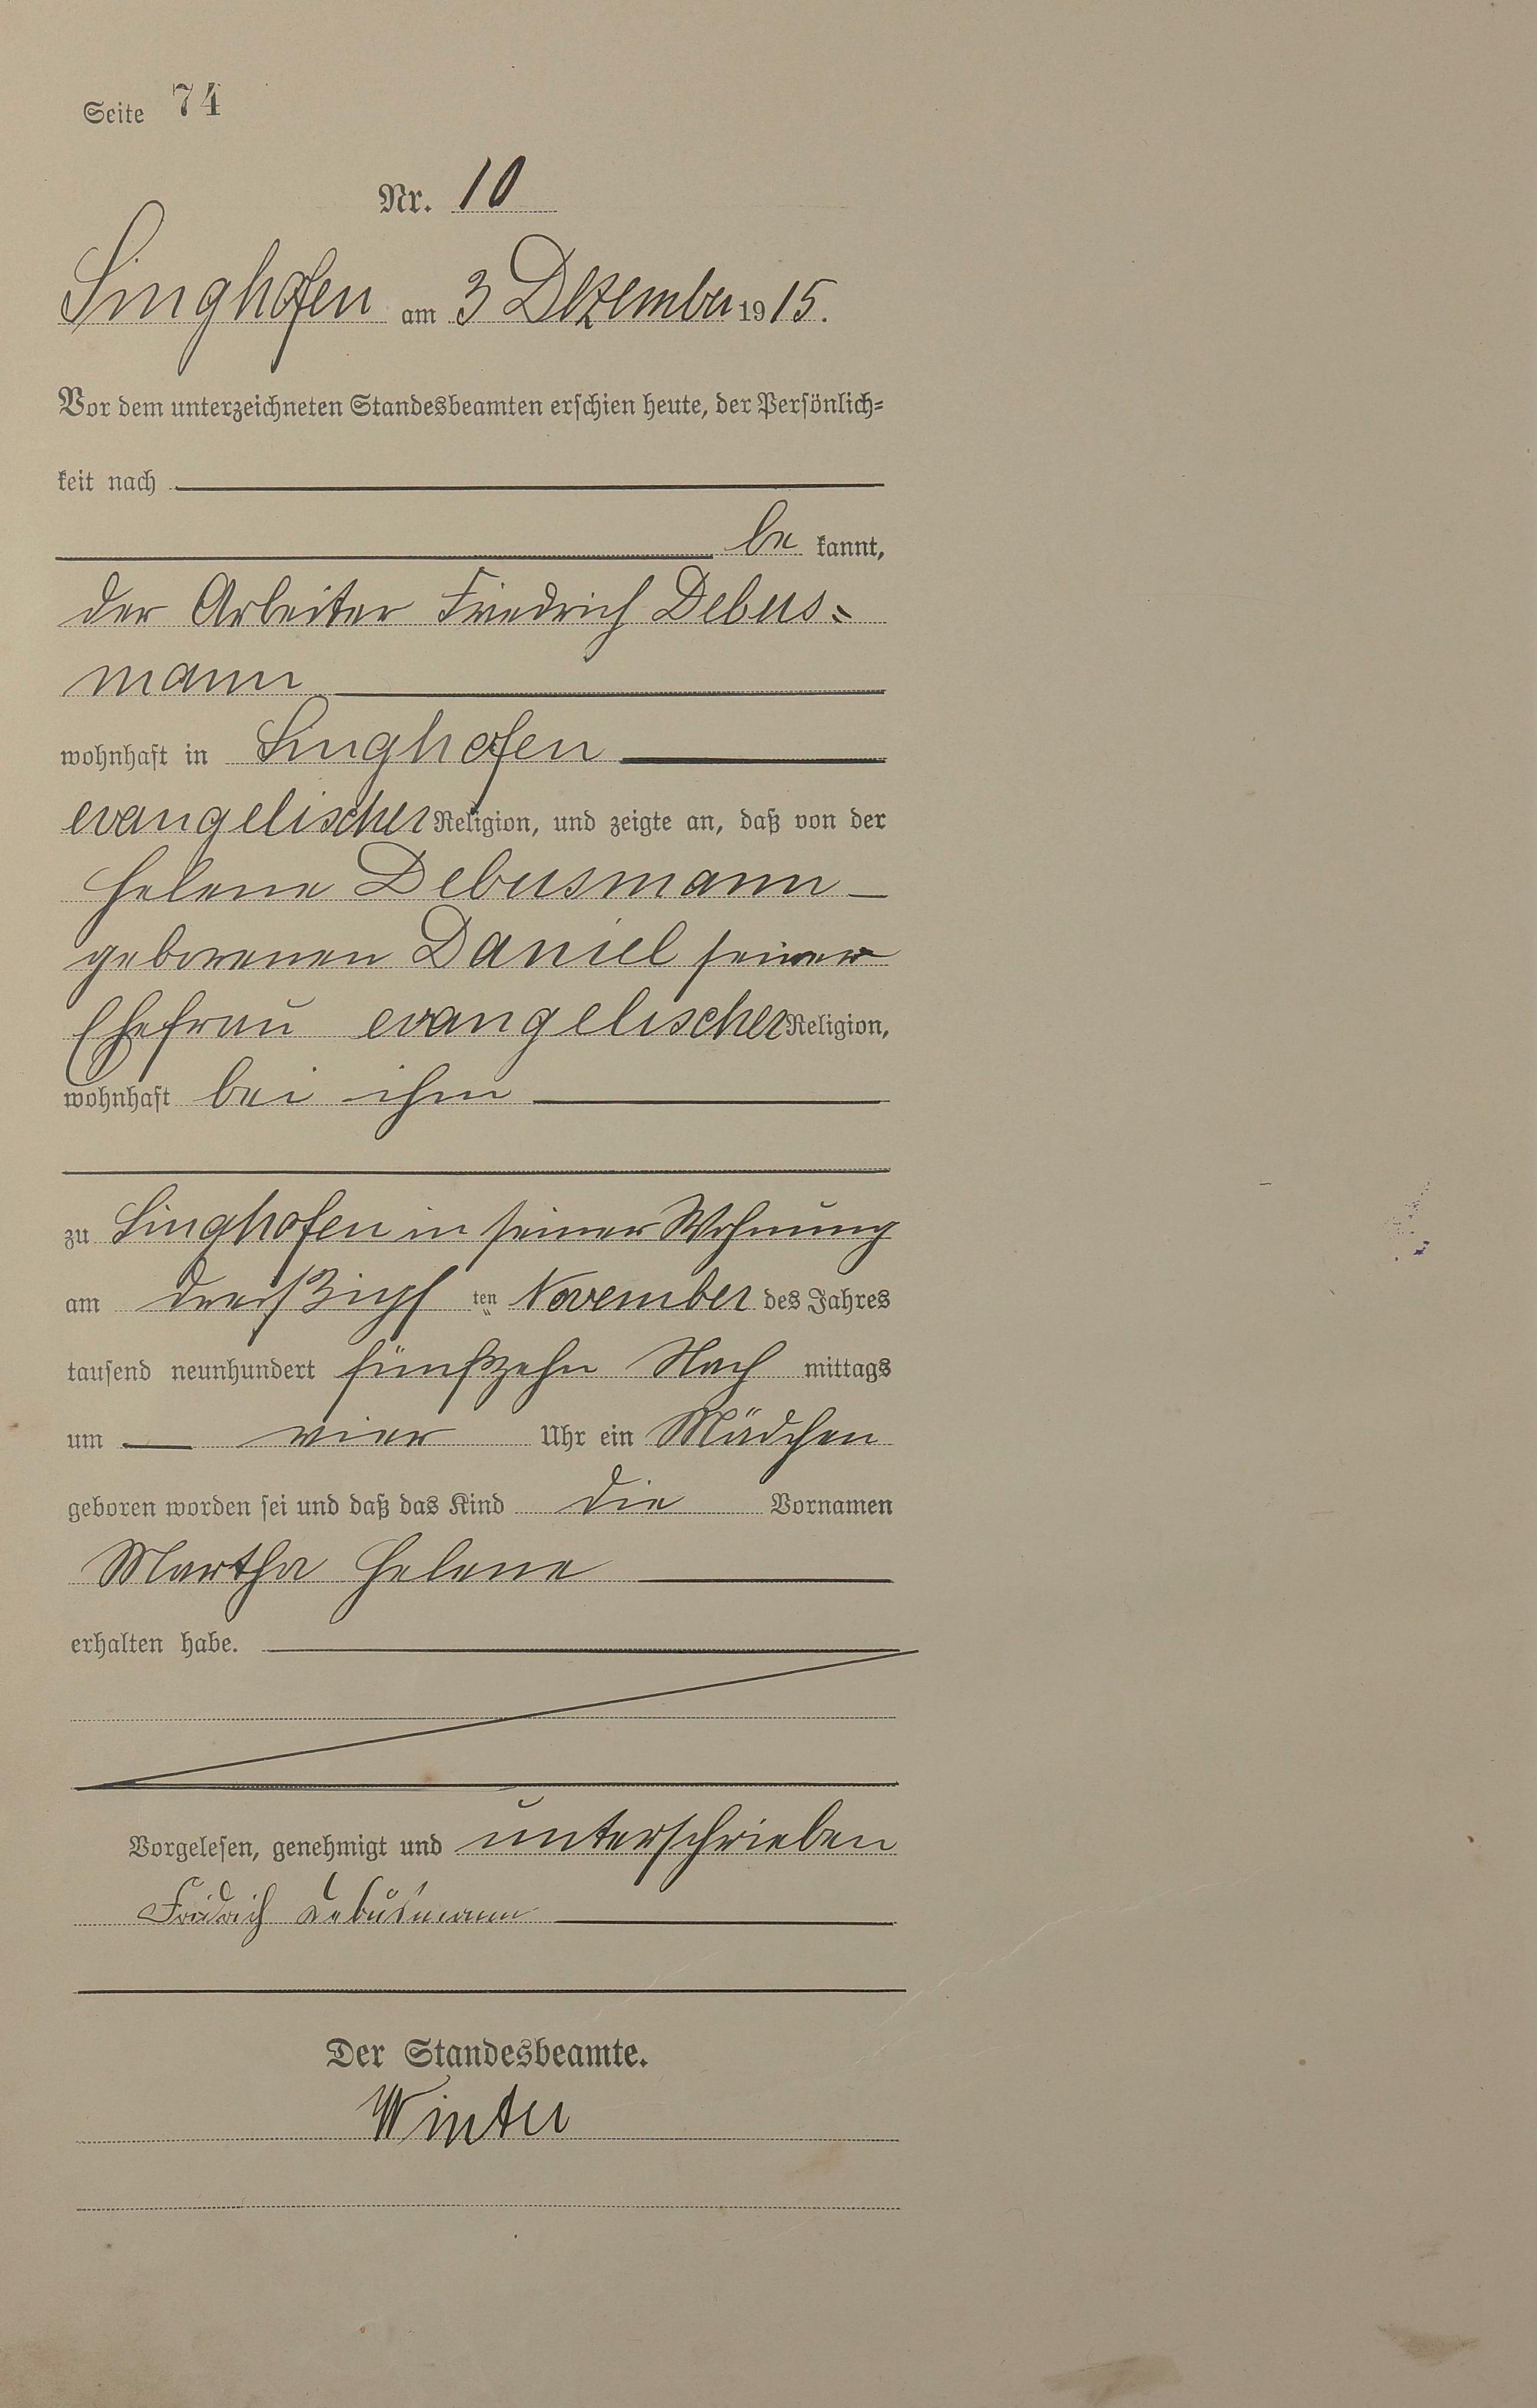 Seite 74
Nr. 10
Singhofen am 3 Dezember 1915.
Vor dem unterzeichneten Standesbeamten erschien heute, der Persönlich=
keit nach
be kannt,
der Arbeiter Friedrich Debus=
mann
wohnhaft in Singhofen
evangelischer Religion, und zeigte an, daß von der
Helene Debusmann
geborenen Daniel seiner
Ehefrau evangelischer Religion,
wohnhaft bei ihm
zu Singhofen in seiner Wohnung
am dreißigst ten November des Jahres
tausend neunhundert fünfzehn Nach mittags
um vier Uhr ein Mädchen
geboren worden sei und daß das Kind die Vornamen
Martha Helene
erhalten habe.
Vorgelesen, genehmigt und unterschrieben
Fridrich Debusmann
Der Standesbeamte.
Winter